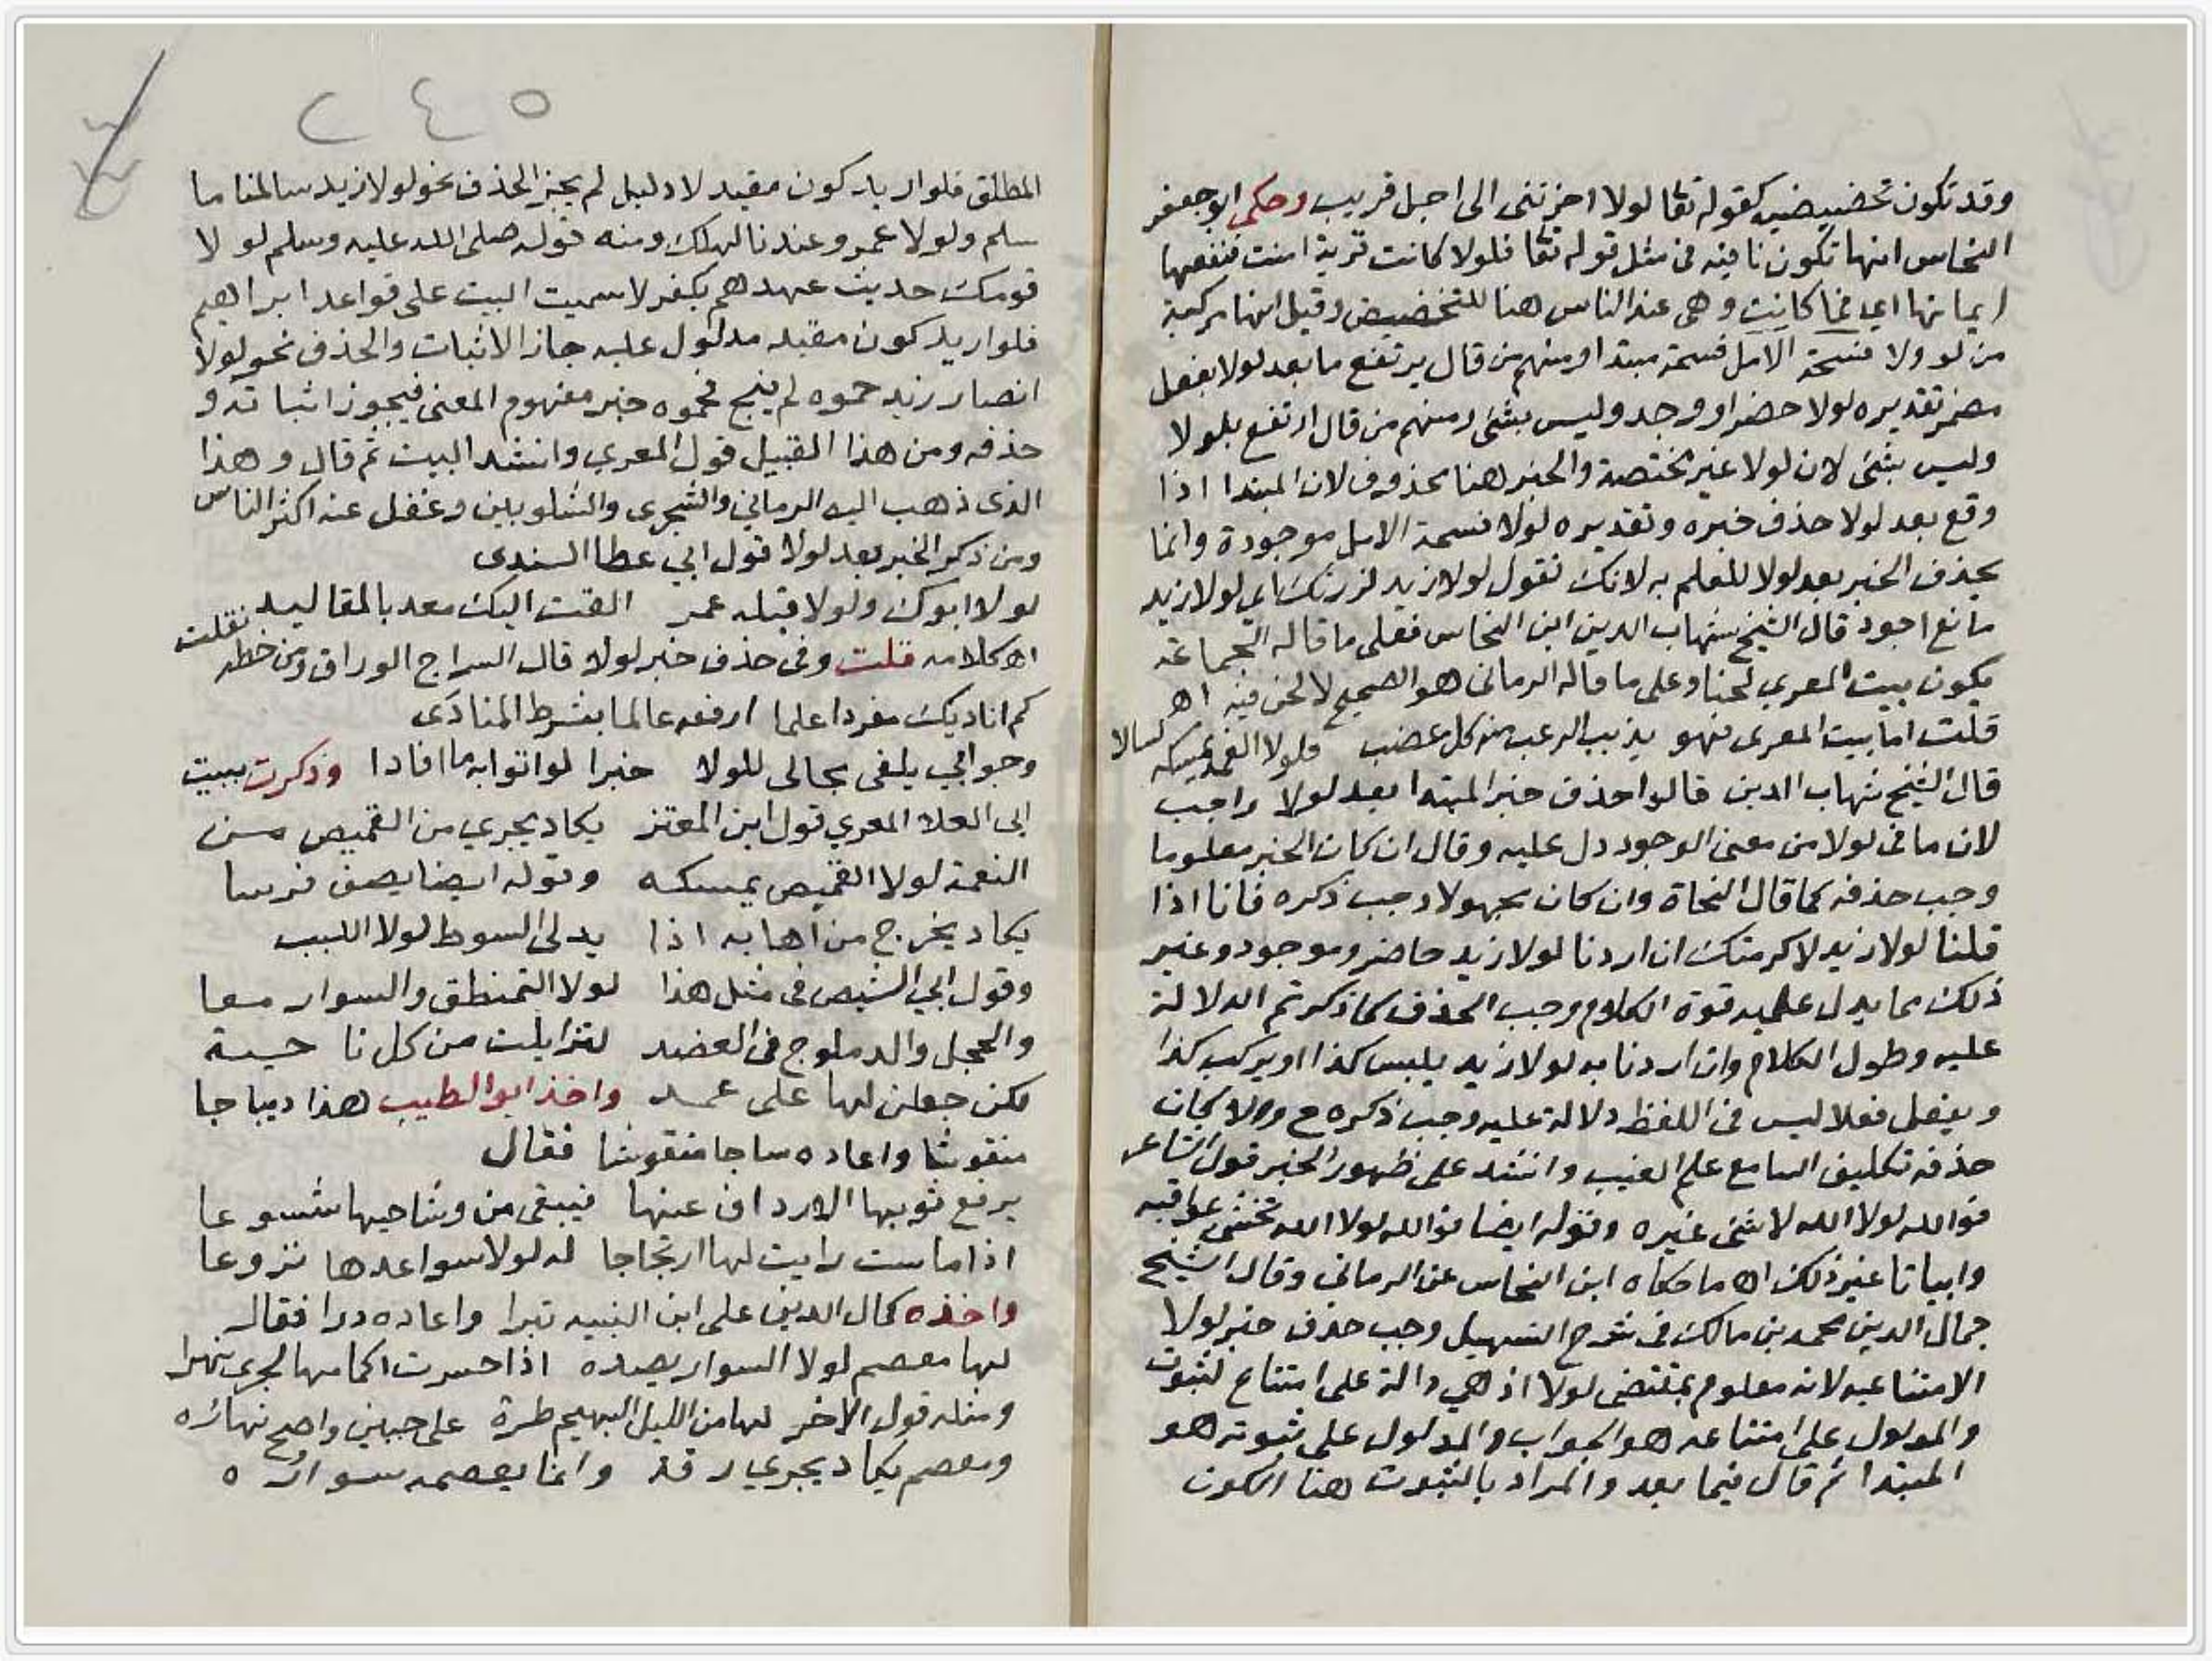 وقد تكون تحضيضية كقوله تعا لولا اخرتنى الى اجل قريب وحكى ابو جعفر
النحاس انها تكون نافيه فى مثل قوله تعا فلولا كانت قرية امنت فنفعها
ايمانها اي فما كانت وهى عند الناس هنا للتحضيض وقيل انها مركبة
من لو ولا فنسمة الامل فسمة مبتدا ومنهم من قال يرتفع ما بعد لولا بفعل
مضمر تقديره لولا حضر او وجد وليس بشى ومنهم من قال ارتفع بلولا
وليس بشى لان لولا غير مختصة والخبر هنا محذوف لان المبتدا اذا
وقع بعد لولا حذف خبره وتقديره لولا نسمة الامل موجودة وانما
يحذف الخبر بعد لولا للعلم به لانك تقول لولا زيد لزرتك اي لولا زيد
مانع اجود قال الشيخ شهاب الدين ابن النحاس فعلى ما قاله الجماعة
يكون بيت المعري لحنا وعلى ما قاله الرمانى هو الصحيح لا لحن فيه اه
قلت اما بيت المعرى فهو يذيب الرعب منه كل عضب فلولا الغمد يمسكه لسالا
قال الشيخ شهاب الدين قالوا حذف خبر المبتدا بعد لولا واجب
لان ما فى لولا من معنى الوجود دل عليه وقال ان كان الخبر معلوما
وجب حذفه كما قال النحاة وان كان مجهولا وجب ذكره فانا اذا
قلنا لولا زيد لاكرمتك ان اردنا لولا زيد حاضر وموجود وغير
ذلك مما يدل عليه قوة الكلام وجب الحذف كما ذكر ثم الدلالة
عليه وطول الكلام وان اردنا به لولا زيد يلبس كذا او يركب كذا
ويفعل فعلا ليس فى اللفظ دلالة عليه وجب ذكره ح والا لكان
حذفه تكليف السامع علم الغيب وانشد على ظهور الخبر قول الشاعر
فوالله لولا الله لا شى غيره وقوله ايضا فوالله لولا الله تخشى عواقبه
وابياتا غير ذلك اه ما حكاه ابن النحاس عن الرمانى وقال الشيخ
جمال الدين محمد بن مالك فى شرح التسهيل وجب حذف خبر لولا
الامتناعيه لانه معلوم بمقتضى لولا اذ هي دالة على امتناع لثبوت
والمدلول على امتناعه هو الجواب والمدلول على ثبوته هو
المبتدا ثم قال فيما بعد والمراد بالثبوت هنا الكون
٢٤٥
المطلق فلو اريد كون مقيد لا دليل لم يجز الحذف نحو لولا زيد سالمنا ما
سلم ولولا عمرو عندنا لهلك ومنه قوله صلى الله عليه وسلم لولا
قومك حديث عهدهم بكفر لاسميت البيت على قواعد ابراهيم
فلو اريد كون مقيد مدلول عليه جاز الاثبات والحذف نحو لولا
انصار زيد حموه لم ينج فحموه خبر مفهوم المعنى فيجوز اثباته و
حذفه ومن هذا القبيل قول المعري وانشد البيت ثم قال وهذا
الذى ذهب اليه الرمانى والشجرى والشلوبين وغفل عنه اكثر الناس
ومن ذكر الخبر بعد لولا قول ابي عطا السندى
لولا ابوك ولولا قبله عمر القت اليك معد بالمقاليد
اه كلامه قلت وفى حذف خبر لولا قال السراج الوراق ومن خطه نقلت
كم اناديك مفردا علما ارفعه عالما بشرط المنادى
وجوابي يلغى بحالى للولا خبرا لو اتوا به ما افادا وذكرت ببيت
ابى العلاء المعري قول ابن المعتز يكاد يجري من القميص من
النعمة لولا القميص يمسكه وقوله ايضا يصف فرسا
يكاد يخرج من اهابه اذا يدلى السوط لولا اللبب
وقول ابي الشيص فى مثل هذا لولا التمنطق والسوار معا
والحجل والدملوج فى العضد لتزايلت من كل ناحية
لكن جعلن لها على عمد واخذ ابو الطيب هذا ديباجا
منقوشا واعاده ساجا منقوشا فقال
يرفع ثوبها الارداف عنها فيبقى من وشاحيها شسوعا
اذا ماست رايت لها ارتجاجا له لولا سواعدها نزوعا
واخذه كمال الدين على ابن النبيه تبرا واعاده درا فقال
لها معصم لولا السوار يصده اذا حسرت اكمامها لجرى نهرا
ومثله قول الاخر لها من الليل البهيم طرة على جبين واضح نهاره
ومعصم يكاد يجري رقة وانما يعصمه سواره